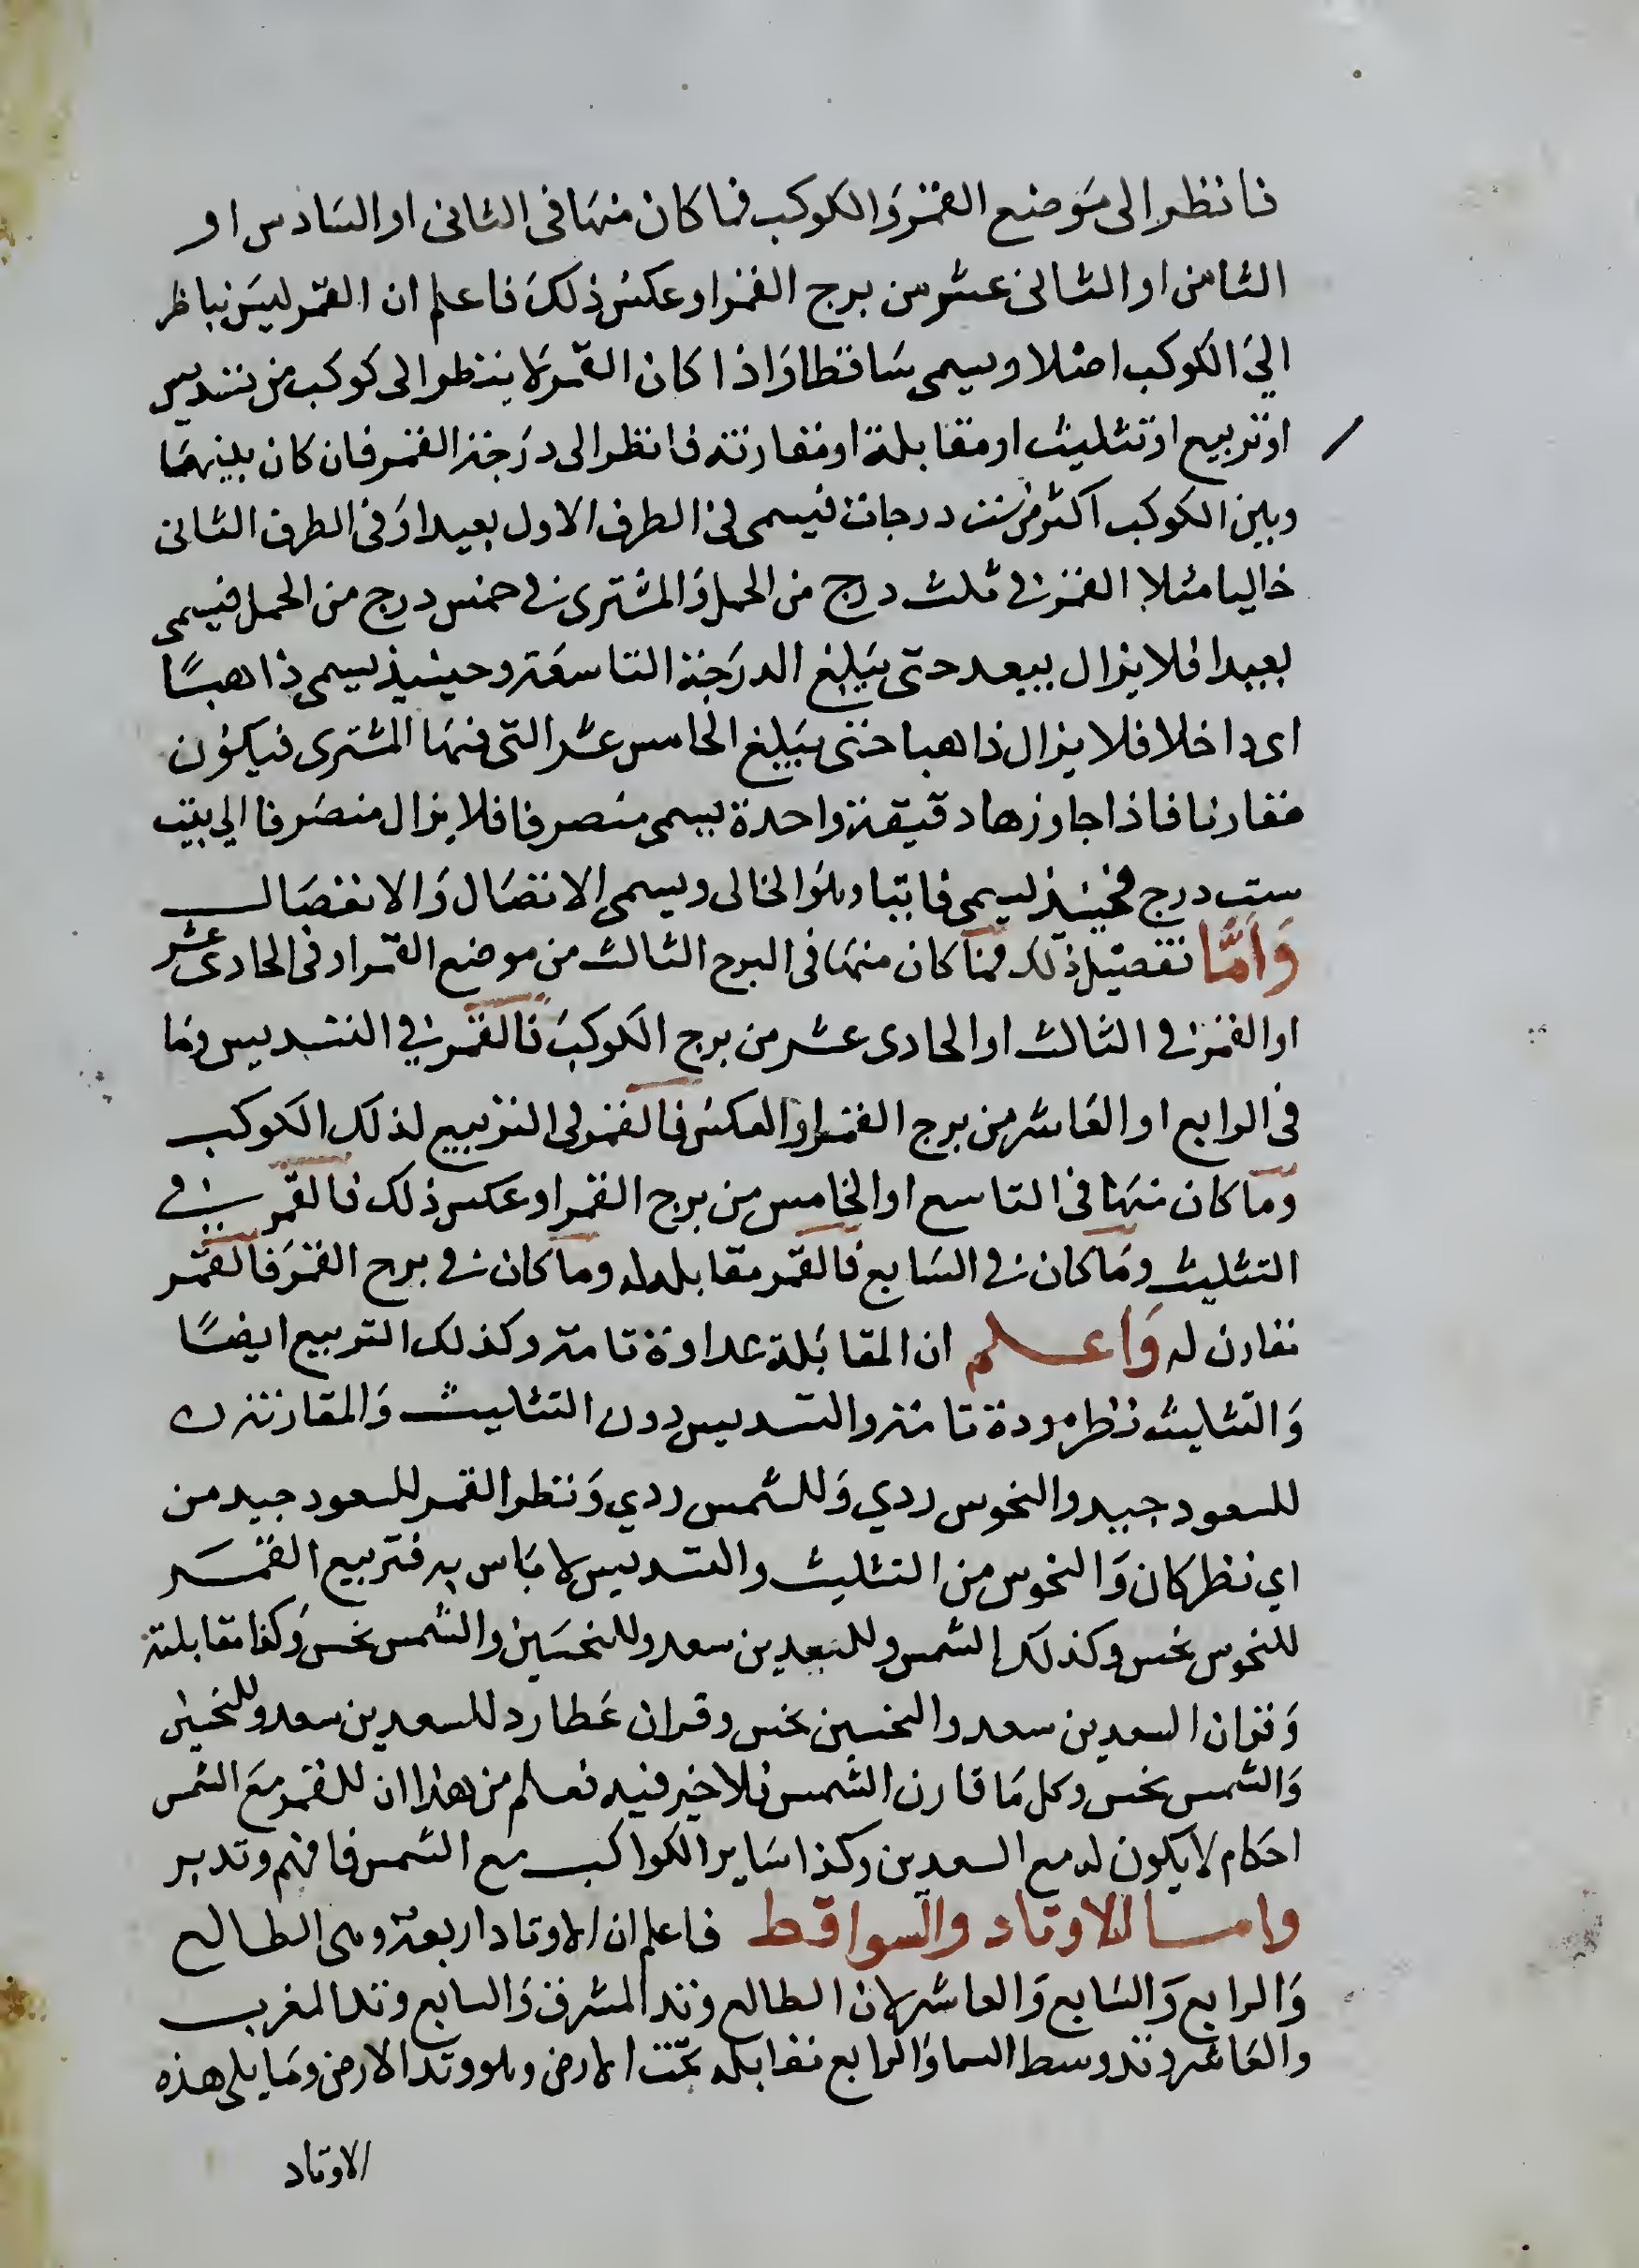 فانظر الى موضع القمر والكوكب فما كان منها في الثاني او السادس او
الثامن او الثاني عشر من برج القمر او عكس ذلك فاعلم ان القمر ليس بناظر
الي الكوكب اصلا ويسمى ساقطا واذا كان القمر لا ينظر الى كوكب من تسديس
او تربيع او تثليث او مقابلة او مقارنة فانظر الى درجة القمر فان كان بينهما
وبين الكوكب اكثر من ست درجات فيسمى في الطرف الاول بعيدا وفي الطرف الثاني
خاليا مثلا القمر في ثلث درج من الحمل والمشتري في خمس درج من الحمل فيسمى
بعيدا فلا يزال يبعد حتى يبلغ الدرجة التاسعة وحينيذ يسمى ذاهبا
اي داخلا فلا يزال ذاهبا حتى يبلغ الخامس عشر التي فيها المشتري فيكون
مقارنا فاذا جاوزها دقيقة واحدة يسمى منصرفا فلا يزال منصرفا الي بيت
ست درج فحينيذ يسمى فايتا وهو الخالى ويسمى الاتصال والانفصال
وَأمَّا تفصيل ذلك فما كان منها في البرج الثالث من موضع القمر او في الحادى عشر
او القمر في الثالث او الحادى عشر من برج الكوكب فالقمر في التسديس وما
في الرابع او العاشر من برج القمر او العكس فالقمر في التربيع لذلك الكوكب
وما كان منها في التاسع او الخامس من برج القمر او عكس ذلك فالقمر في
التثليث وما كان في السابع فالقمر مقابله له وما كان في برج القمر فالقمر
مقارن له وَاعلم ان المقابلة عداوة تامة وكذلك التربيع ايضًا
والتثليث نظر مودة تامة والتسديس دون التثليث والمقارنة
للسعود جيد والنحوس ردي وللشمس ردي ونظر القمر للسعود جيد من
اي نظر كان والنحوس من التثليث والتسديس لا باس به فتربيع القمر
للنحوس نحس وكذلك الشمس وللسعدين سعد وللنحسين والشمس نحس وكذا مقابلته
وقران السعدين سعد والنحسين نحس وقران عطارد للسعدين سعد وللنحسين
والشمس نحس وكل ما قارن الشمس فلا خير فيه فعلم من هذا ان للقمر مع الشمس
احكام لا يكون له مع السعدين وكذا ساير الكواكب مع الشمس فافهم وتدبر
واما الاوتاد والسواقط فاعلم ان الاوتاد اربعة وهي الطالع
والرابع والسابع والعاشر لان الطالع وتد المشرق والسابع وتد المغرب
والعاشر وتد وسط السما والرابع مقابله تحت الارض وهو وتد الارض وما يلى هذه
الاوتاد